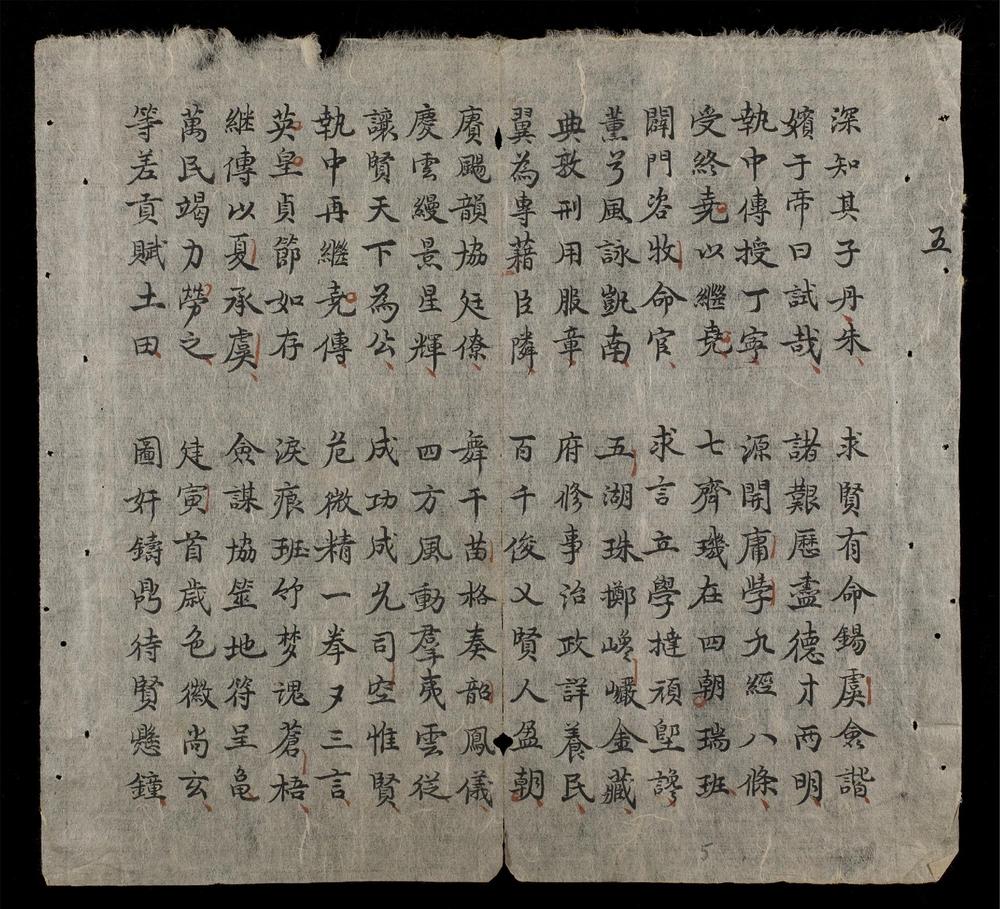 五
深知其子丹朱 求賢有命錫虞僉諧
嬪于帝曰試哉 諸艱歷盡德才兩明
執中傳授丁寧 源開庸學九經八條
受終堯以繼堯 七齊璣在四朝瑞班
闢門咨牧命官 求言立學撻頑堲讒
薰兮風詠凱南 五湖珠擲巉巗金藏
典敦刑用服章 府修事治政詳養民
翼為專藉臣隣 百千俊乂賢人盈朝
賡颺韻協廷僚 舞干苗格奏韶鳳儀
慶雲縵景星輝 四方風動羣夷雲從
讓賢天下為公 成功成允司空惟賢
執中再繼堯傳 危微精一拳々三言
英皇貞節如存 淚痕班竹梦魂蒼梧
継傳以夏承虞 僉謀協筮地符呈龜
萬民竭力勞之 建寅首歲色徽尚玄
等差貢賦土田 圖奸鑄鼎待賢懸鐘
5